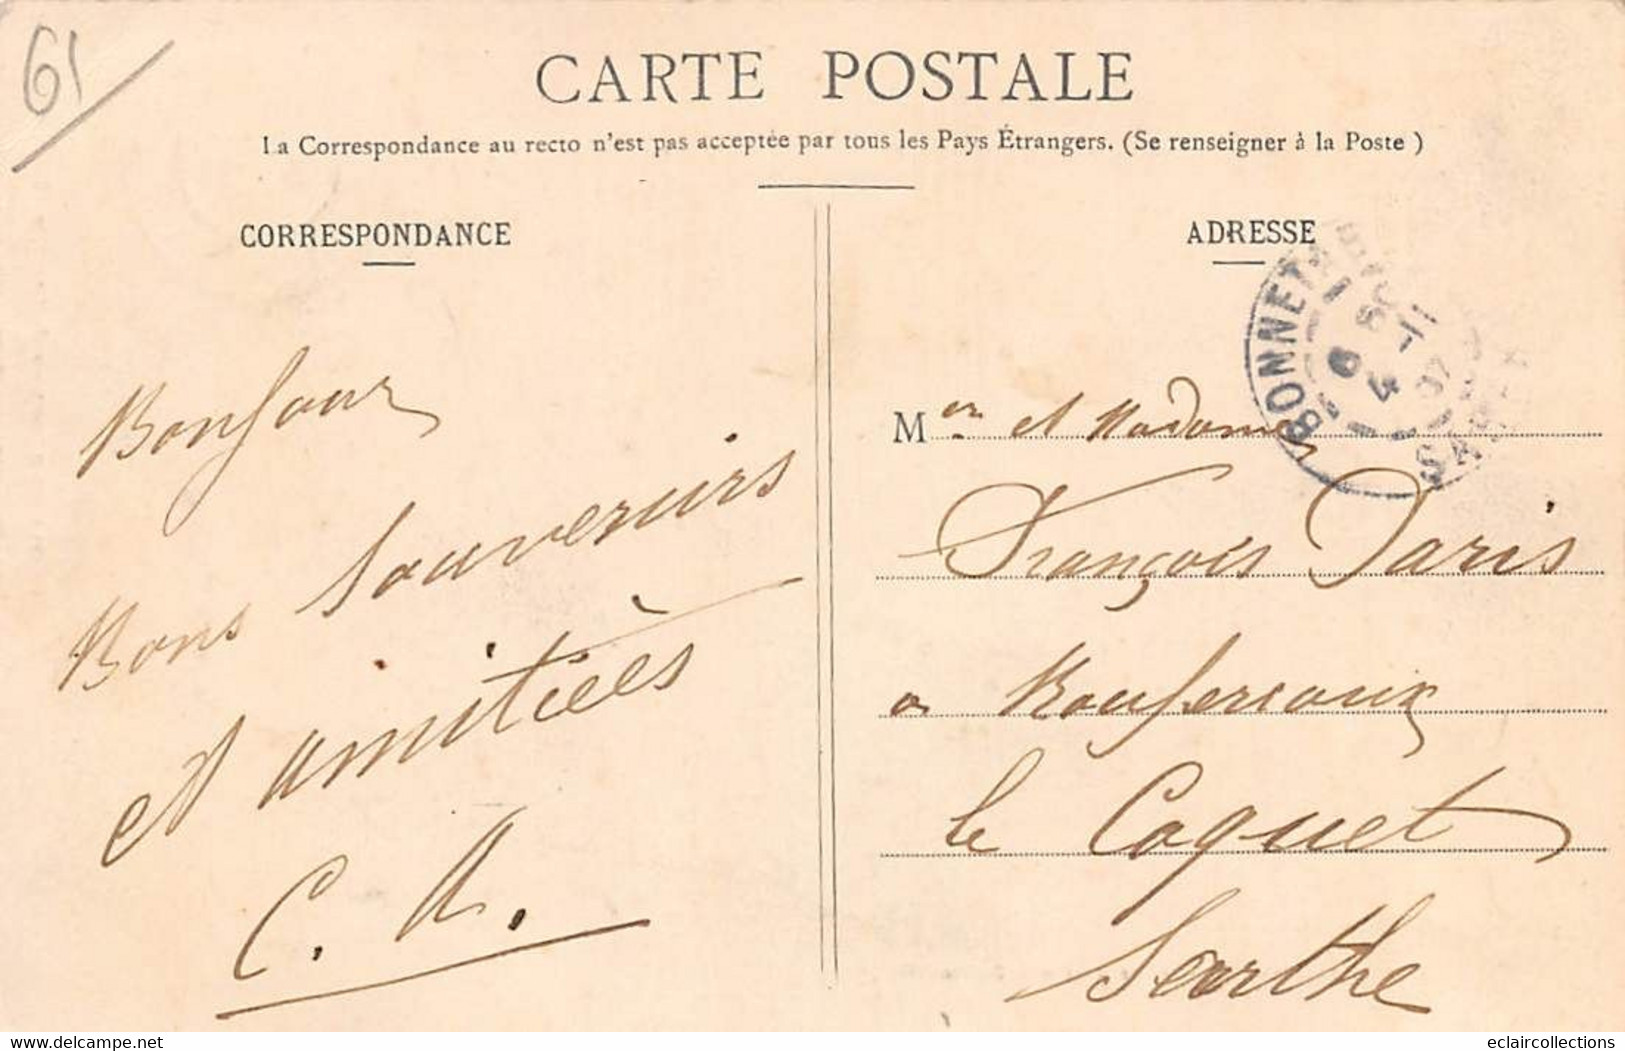 61
CARTE POSTALE
La Correspondance au recto n'est pas acceptée par tous les Pays Étrangers. (Se renseigner à la Poste )
CORRESPONDANCE
Bonjour
Bons Souvenirs
et amitiées
C. A.
ADRESSE
BONNETABLE
SARTHE
Mer et Madame
François Paris
a Rouperroux
le Coquet
Sarthe
www.delcampe.net
eclaircollections